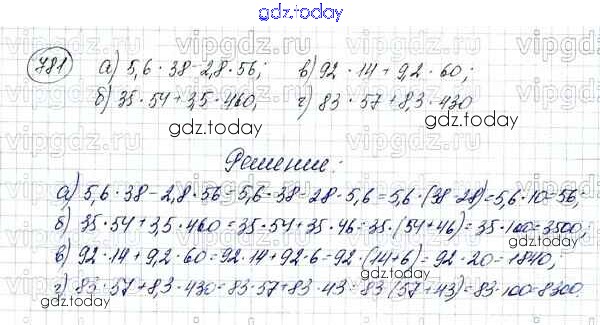 gdz.today
781 а) 5,6 · 38 - 2,8 · 56; в) 92 · 14 + 9,2 · 60;
б) 35 · 54 + 3,5 · 460; г) 83 · 57 + 8,3 · 430
gdz.today
gdz.today
Решение:
gdz.today
а) 5,6 · 38 - 2,8 · 56 = 5,6 · 38 - 28 · 5,6 = 5,6 · (38 - 28) = 5,6 · 10 = 56;
б) 35 · 54 + 3,5 · 460 = 35 · 54 + 35 · 46 = 35 · (54 + 46) = 35 · 100 = 3500;
gdz.today
в) 92 · 14 + 9,2 · 60 = 92 · 14 + 92 · 6 = 92 · (14 + 6) = 92 · 20 = 1840;
г) 83 · 57 + 8,3 · 430 = 83 · 57 + 83 · 43 = 83 (57 + 43) = 83 · 100 = 8300.
gdz.today
gdz.today